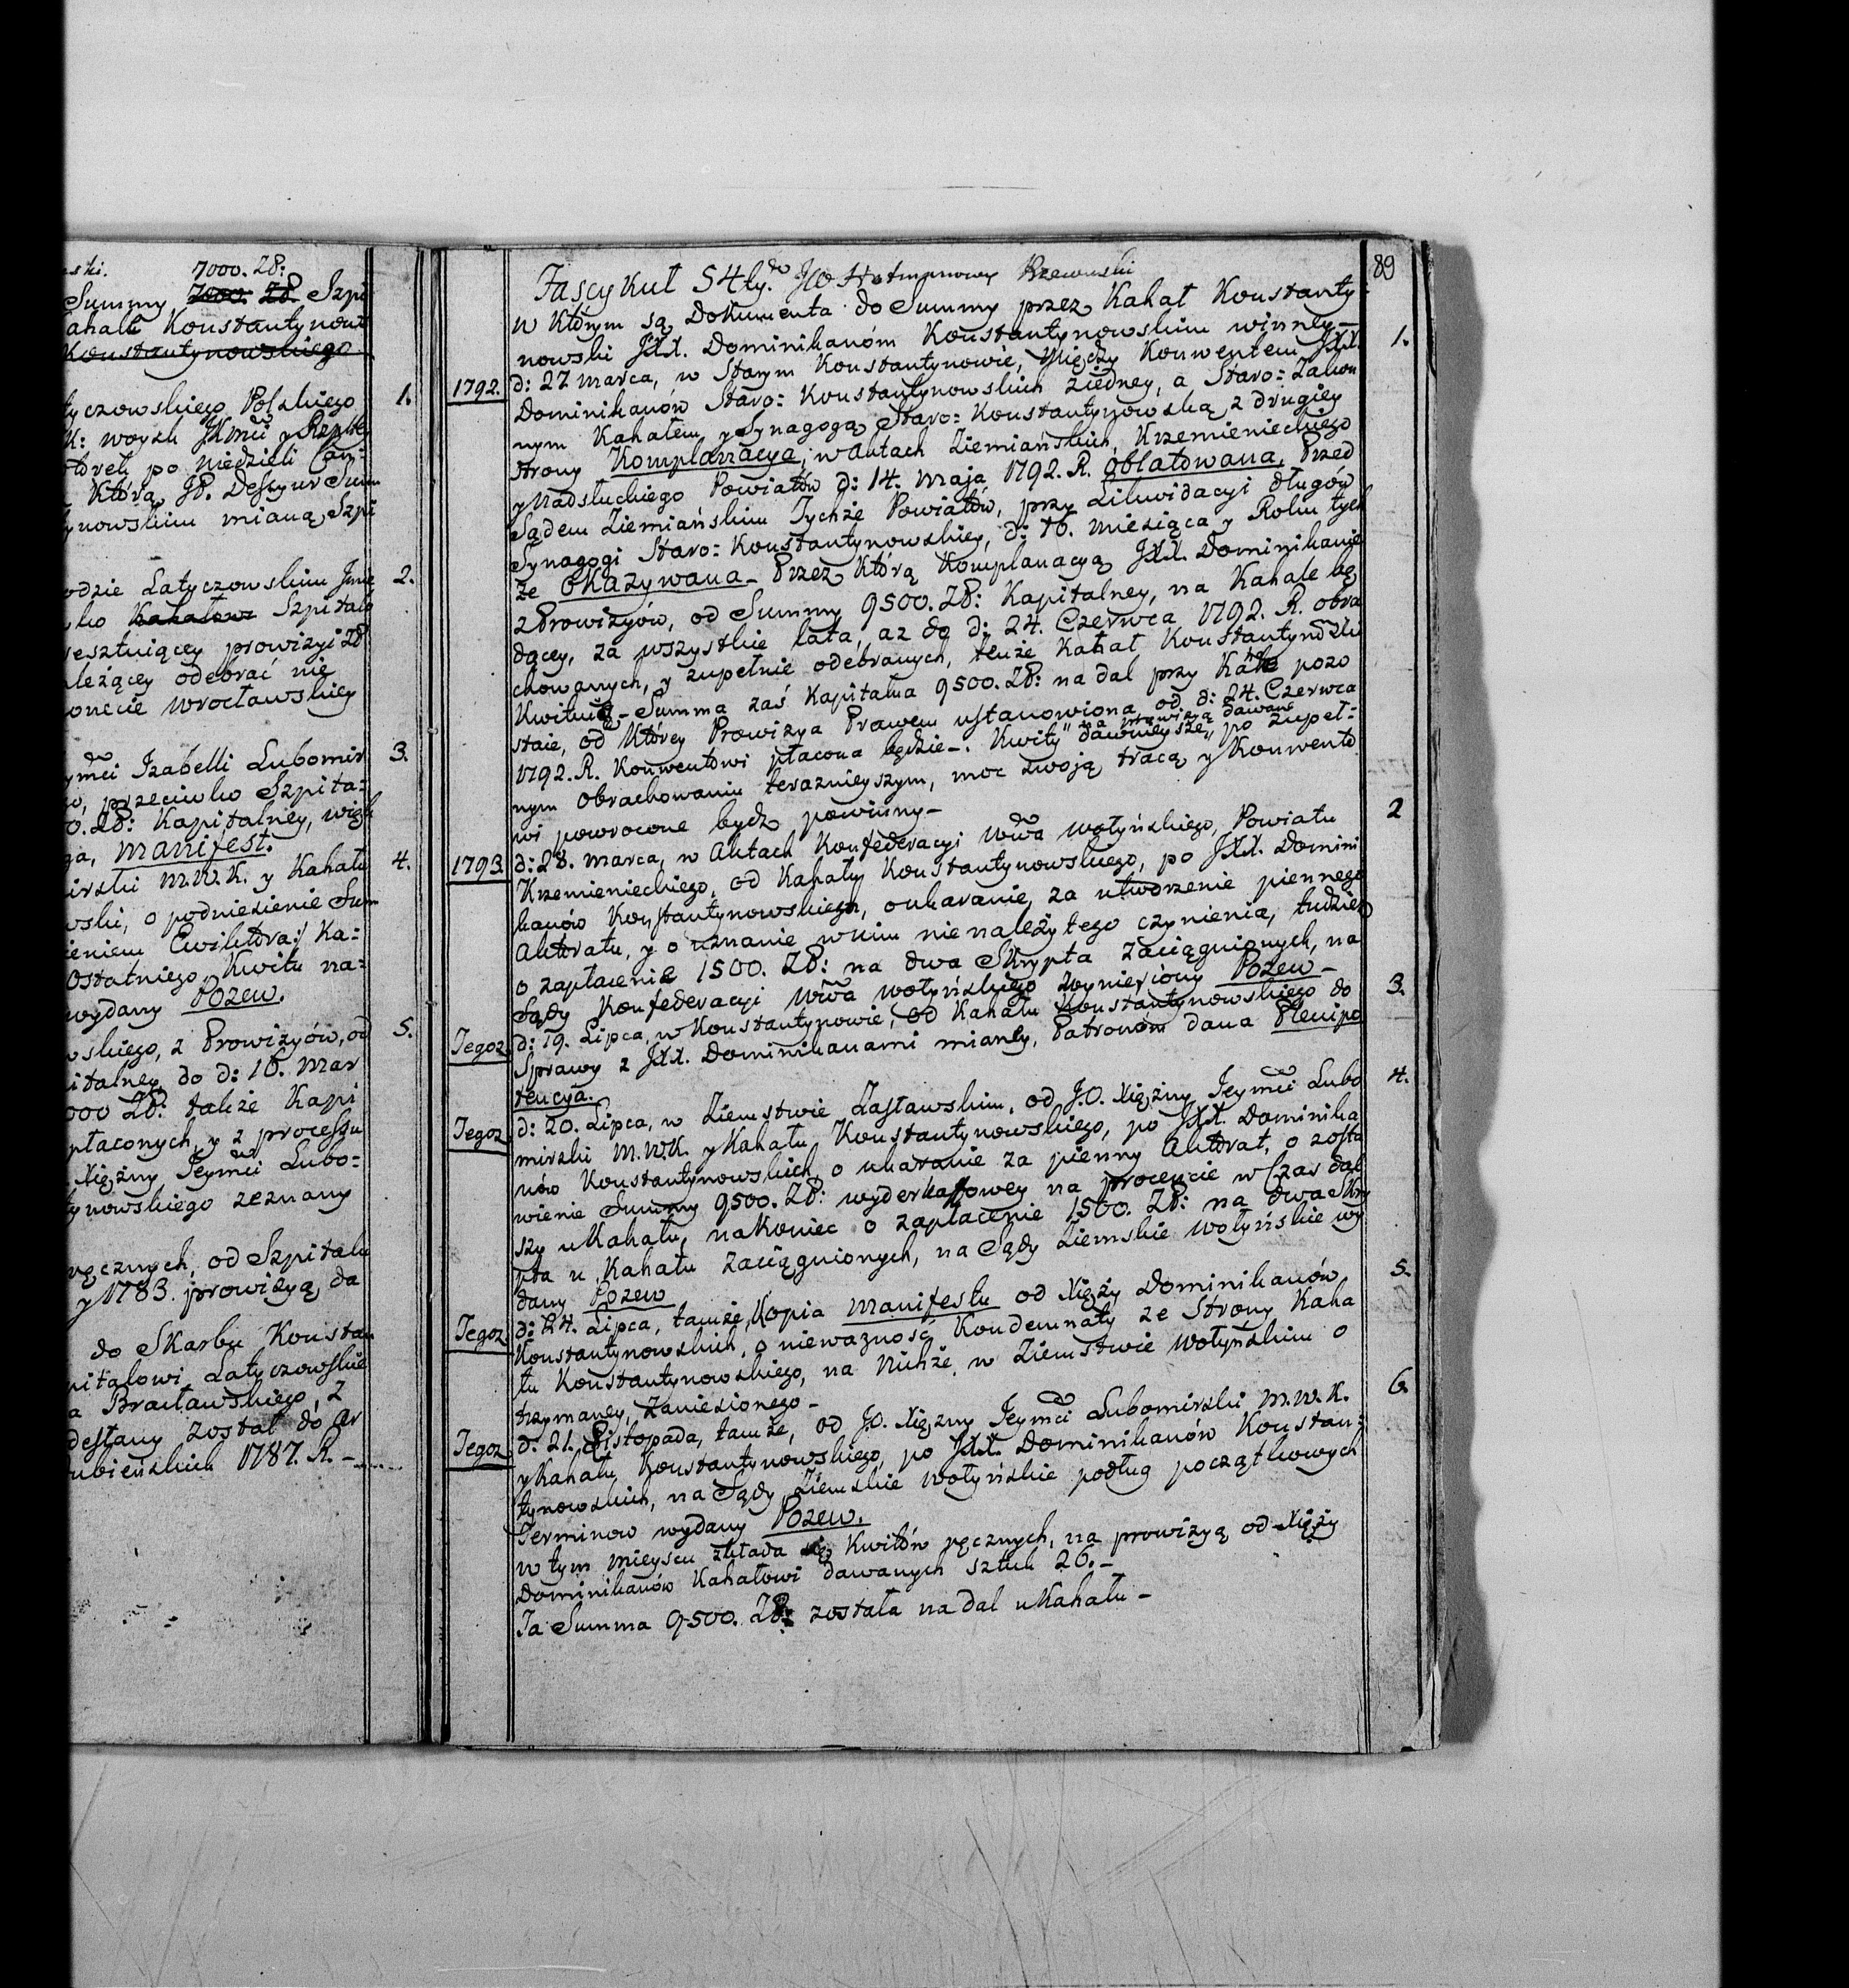 ski. 7000. Zł:
Summy 7000. Zł. Szpi
ahału Konstantynow
Konstantynowskiego
tyczowskiego Polskiego 1.
K: woysk JKmci y Rzpltey
torek po Niedzieli Con:
Którą JP. Deszzur Sum
tynowskim mianą, Szpi
odzie Latyczowskim Jmie 2.
ko Kahałowi Szpitalo
resztuiącey prowizyi Zł
ależącey odebrać nie
onecie wrocławskiey
ymci Izabelli Lubomir 3.
o, przeciwko Szpita:
0. Zł: Kapitalney, wizl
ga, Manifest.
irski M.W.K. y Kahału 4.
wski, o podniesienie Sum
ieniem Ewiktora:/ Ka:
Ostatniego Kwitu na:
wydany Pozew.
wskiego, z Prowizyów, od 5.
italney do d: 16. Mar
000 Zł: także Kapi
płaconych, y z processu
Xiężny Jeymci Lubo:
tynowskiego zeznany
ręcznych, od Szpitalu
y 1783. prowizyą da
do Skarbu Konstan
pitalowi Latyczowskie
a Bracławskiego, z
desłany został do Ar
ubieńskich 1787. R. –
89
Fascykuł 54ty. do JW Hetmanowey Rzewuski
w Którym są Dokumenta do Summy przez Kahał Konstanty:
nowski JXX. Dominikanóm Konstantynowskim winney – 1.
1792. d: 27 marca, w Starym Konstantynowie, Między Konwentem JXX.
Dominikanów Staro: Konstantynowskich ziedney, a Staro: Zakon
nym Kahałem y Synagogą Staro: Konstantynowską z drugiey
strony Komplanacya, w aktach Ziemiańskich, Krzemienieckiego
y Nadsłuckiego Powiatów d: 14. maja 1792. R. oblatowana, Przed
Sądem Ziemiańskim Tychże Powiatów, przy Likwidacyi długów
Synagogi Staro: Konstantynowskiey, d: 16. miesiąca y Roku tych
że Okazywana – Przez Którą Komplanacyą JXX. Dominikanie
z Prowizyów, od Summy 9500. Zł: Kapitalney, na Kahale bę
dącey, za wszystkie lata, aż do d: 24. Czerwca 1792. R. obra
chowanych, y zupełnie odebranych, tenże Kahał Konstantynowski
Kwituie – Summa zaś Kapitalna 9500. Zł: nadal przy Kahale pozo
staie, od Którey Prowizya Prawem ustanowiona od d: 24. Czerwca
1792. R. Konwentowi płacona będzie –. Kwity dawnieysze na prowizyą dawane po zupeł:
nym obrachowaniu teraznieyszym, moc swoją tracą y Konwento
wi powrocone bydz powinny –
1793. d: 28. marca, w Aktach Konfederacyi Wwa wołyńskiego, Powiatu 2
Krzemienieckiego, od Kahału Konstantynowskiego, po JXX. Domini
kanów Konstantynowskiego, o ukaranie, za utworzenie piennego
Aktoratu, y o uznanie wnim nienależytego czynienia, tudziez
o zapłacenie 1500. Zł: na dwa Skrypta zaciągnionych, na
Sądy Konfederacyi Wwa wołyńskiego wyniesiony Pozew –
Tegoz d: 19. Lipca, w Konstantynowie, od Kahału Konstantynowskiego do 3.
Sprawy z JXX. Dominikanami mianey, Patronom dana Plenipo
tencya.
Tegoz d: 20. Lipca, w Ziemstwie Zasławskim, od J.O. Xiężny Jeymci Lubo 4.
mirski M.W.K. y Kahału Konstantynowskiego, po JXX. Dominika
nów Konstantynowskich, o ukaranie za pienny Aktorat, o zosta
wienie Summy 9500. Zł: wyderkaffowey na procencie w Czas dal
szy u Kahału, nakoniec o zapłacenie 1500. Zł: na dwa Skry
pta u Kahału zaciągnionych, na Sądy Ziemskie wołyńskie wy
dany Pozew
Tegoz d: 24. Lipca, tamże, Kopia Manifestu od Xięży Dominikanów 5.
Konstantynowskich, o nieważność Kondemnaty ze Strony Kaha
łu Konstantynowskiego, na Nichże, w Ziemstwie wołyńskim o
trzymaney, zaniesionego –
Tegoz d. 21. Listopada, tamże, od J.O. Xiężny Jeymci Lubomirski M.W.K. 6.
y Kahału Konstantynowskiego, po JXX. Dominikanów Konstan:
tynowskich, na Sądy Ziemskie wołyńskie podług początkowych
Terminow wydany Pozew.
w tym mieyscu składa się Kwitów ręcznych, na prowizyą od Xięży
Dominikanów Kahałowi dawanych sztuk 26. –
Ta Summa 9500. Zł: została nadal u Kahału –